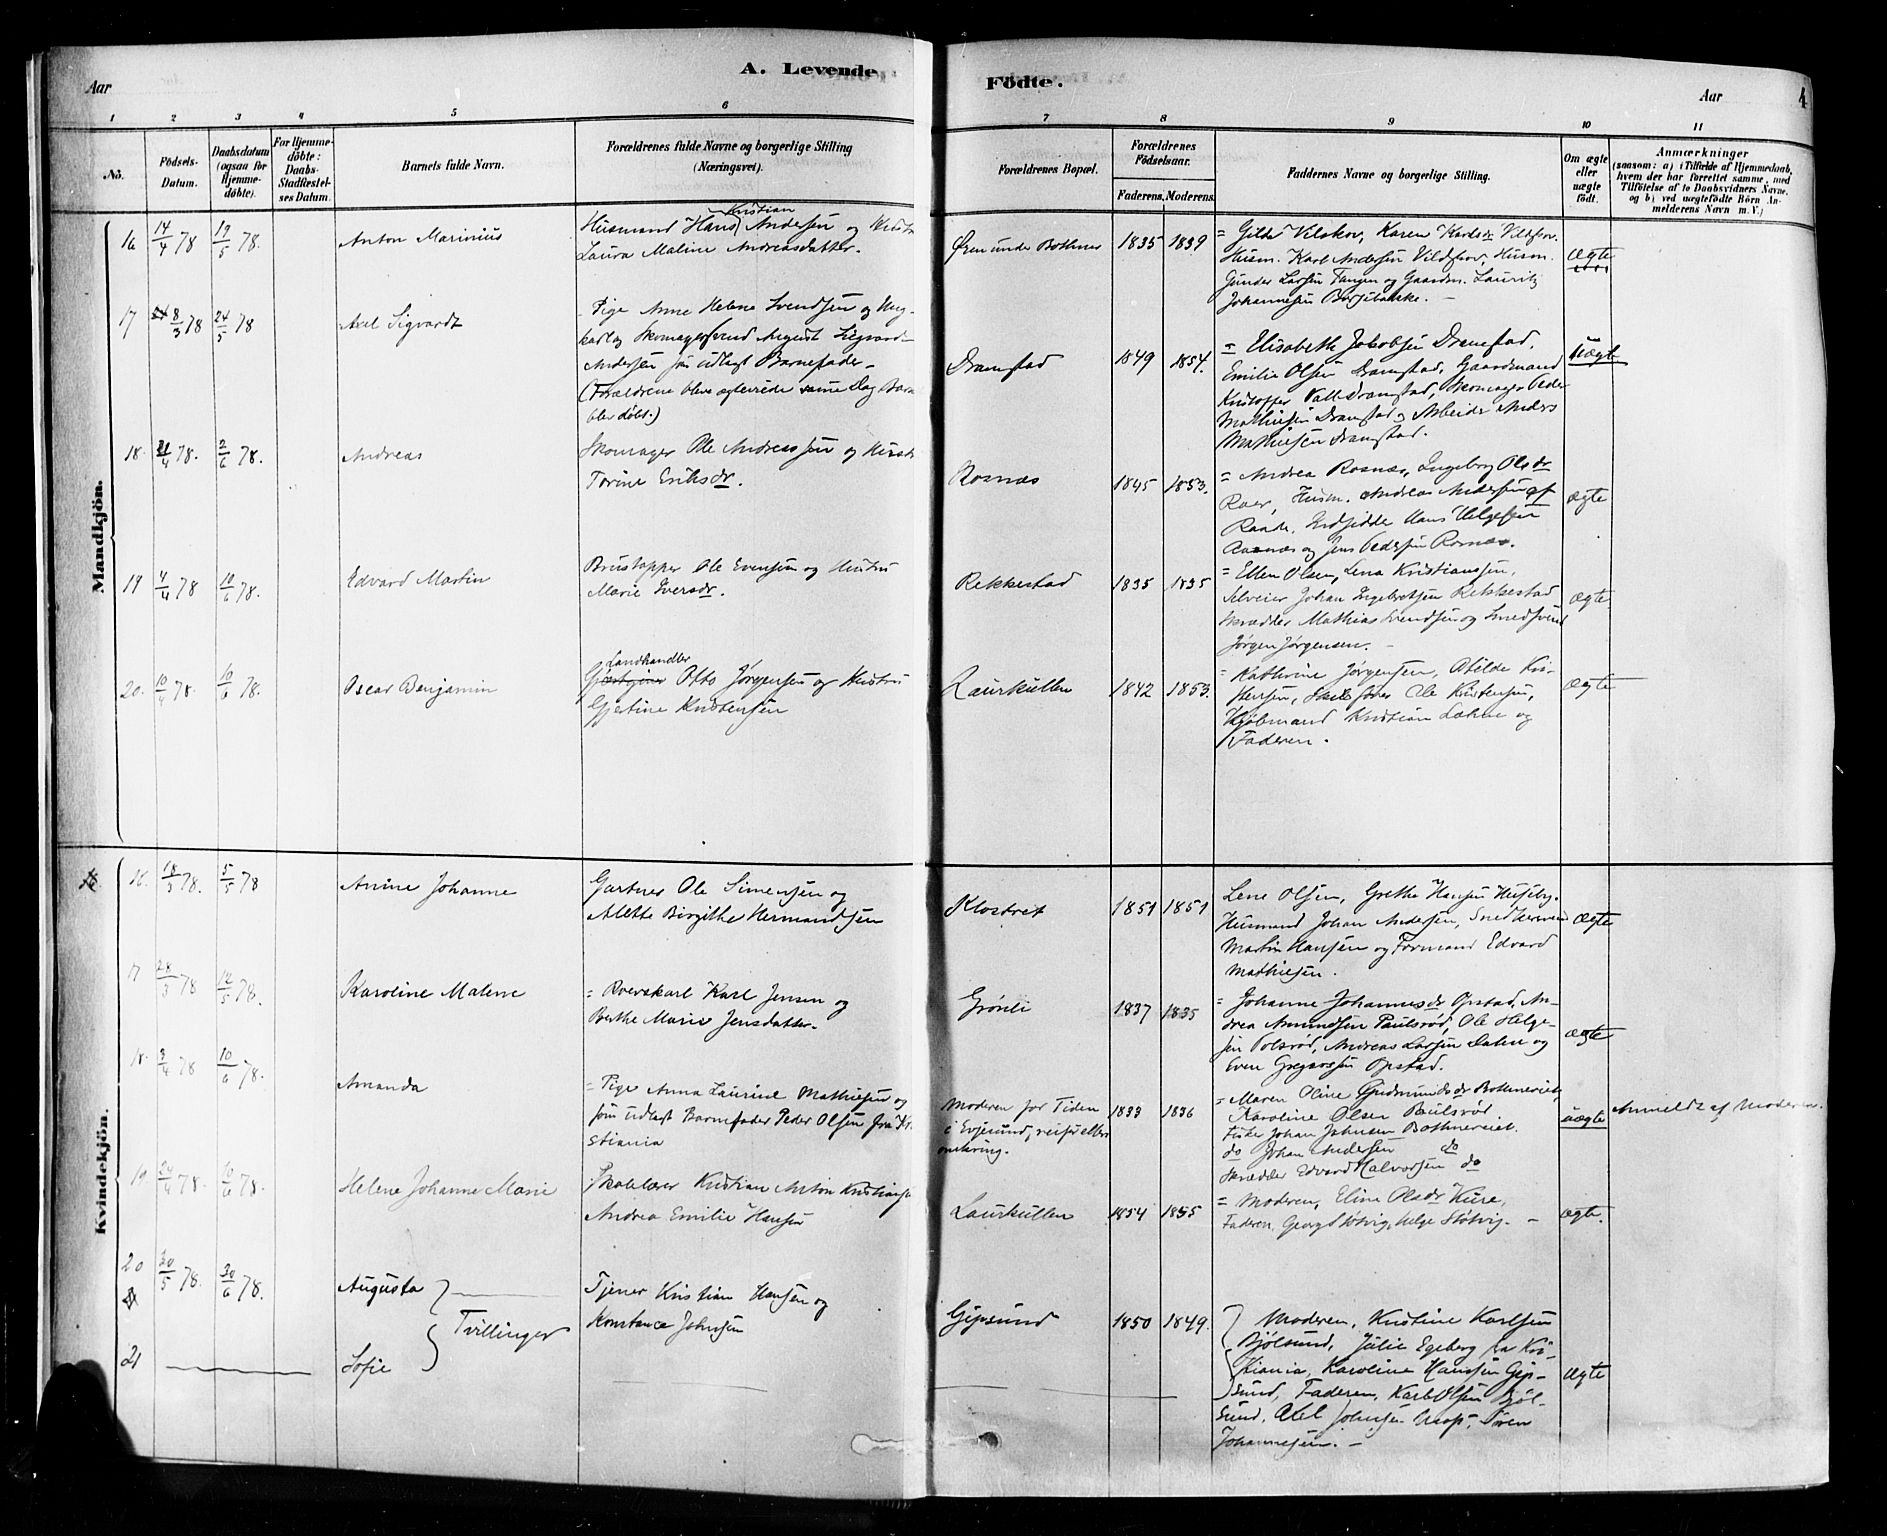 A. Levende
Födte.
Aar
Aar
4
1 2 3 4 5 6 7 8 9 10 11
No.
Födsels-Datum.
Daabsdatum (ogsaa for Hjemme-döbte).
For Hjemme-döbte: Daabs-Stadfæstel-ses Datum.
Barnets fulde Navn.
Forældrenes fulde Navne og borgerlige Stilling (Næringsvei).
Forældrenes Bopæl.
Forældrenes Födselsaar.
Faderens. Moderens.
Faddernes Navne og borgerlige Stilling.
Om ægte eller uægte födt.
Anmærkninger
(saasom: a) i Tilfælde af Hjemmedaab, hvem der har forrettet samme, med Tilföielse af to Daabsvidners Navne, og b) ved uægtefödte Börn Anmelderens Navn m. V.)
Mandkjön.
16 14/4 78 19/5 78. Anton Marinius
Kristian
Husmand Hans Andersen og Hustru
Laura Maline Andreasdatter.
1835 1839
Karen
Husm. Karl Andersen Husm.
Gunder Larsen Tangen og Gaardm. Lauritz
Johannesen
Ægte
17 8/3 78 24/5 78 Axel Sigvardt
Pige Anne Helene Svendsen og Ung-
karl og Skomagersvend August Sigvard
Andersen som udlagt Barnefader
(Forældrene bleve ægteviede samme Dag Barnet
blev döbt.)
Dramstad 1849 1854.
= Elisabeth Jakobsen Dramstad,
Emilie Olsen Dramstad, Gaardmand
Kristoffer Dramstad, Skomager Peder
Mathiesen Dramstad og Arbeider Anders
Mathiesen Dramstad.
Uægte
18. 21/4 78. 2/6 78. Andreas
Skomager Ole Andreassen og Hustru
Torine Eriksdr.
Rosnæs 1845 1853.
= Andrea Rosnæs, Ingeborg Olsdr
Roer, Husm. Andreas Andersen af
Raade, Indsidder Hans Helgesen
Rosnæs og Jens Pedersen Rosnæs.
Ægte
19 4/4 78 10/6 78. Edvard Martin
Ole Evensen og Hustru
Marie Iversdr.
Rekkestad 1835 1835
= Ellen Olsen, Lena Kristianssen,
Selveier Johan Ingebretsen Rekkestad
Skrædder Mathias Svendsen og Smedsvend
Jørgen Jørgensen.
Ægte
20. 10/4 78. 10/6 78. Oscar Benjamin
Landhandler
Otto Jørgensen og Hustru
Gjertine Kristensen
Laurkullen 1842 1853.
= Kathrine Jørgensen, Otilde Kri-
stensen, Ole Kristensen,
Kjöbmand Kristian og
Faderen.
Ægte
Kvindekjön.
16. 18/3 78. 5/5 78 Anine Johanne
Gartner Ole Simensen og
Alette Birgithe Hermandsen
Klostret 1851 1851
Lene Olsen, Grethe Hansen Huseby.
Husmand Johan Andersen,
Martin Hansen og Formand Edvard
Mathiesen.
Ægte
17 28/3 78 12/5 78. Karoline Malene
= Karl Jensen og
Berthe Marie Jensdatter.
Grönli 1837 1835
= Johanne Johannesdr Opstad, An-
drea Amundsen Paulsröd, Ole Helge-
sen, Andreas Larsen Dalen og
Even Gregersen Opstad.
Ægte
18. 3/4 78 10/6 78. Amanda
= Pige Anna Laurine Mathiesen og
som udlagt Barnefader Peder Olsen fra Kri
stiania
Moderen for Tiden
i Evjesund, reiser ellers
omkring.
1833 1836
= Maren Oline Gudmundsdr Bothnereiet,
Karoline Olsen Paulsröd.
Fisker Johan Johnsen Bothnereiet.
do Johan Andersen do
Skrædder Edvard Halvorsen do
uægte
Anmeldt af Moderen.
19 24/4 78. 10/6 78. Helene Johanne Marie
Skolelærer Kristian Anton Kristiansen
Andrea Emilie Hansen
Laurkullen 1854 1855
= Moderen, Eline Olsdr Kure,
Faderen, Georg Stötvig, Helge Stötvig. —
Ægte.
20 30/5 78. 30/6 78. Augusta
Tvillinger
Tjener Kristian Hansen og
Konstance Johnsen
Gipsund 1850 1849.
Moderen, Kristine Karlsen
Bjölsund, Julie Egeberg fra Kri-
stiania, Karoline Hansen Gip-
sund, Faderen, Karl Olsen Bjöl-
sund, Axel Johnsen Moss, Sören
Johannesen. —
21 Sofie
Ægte